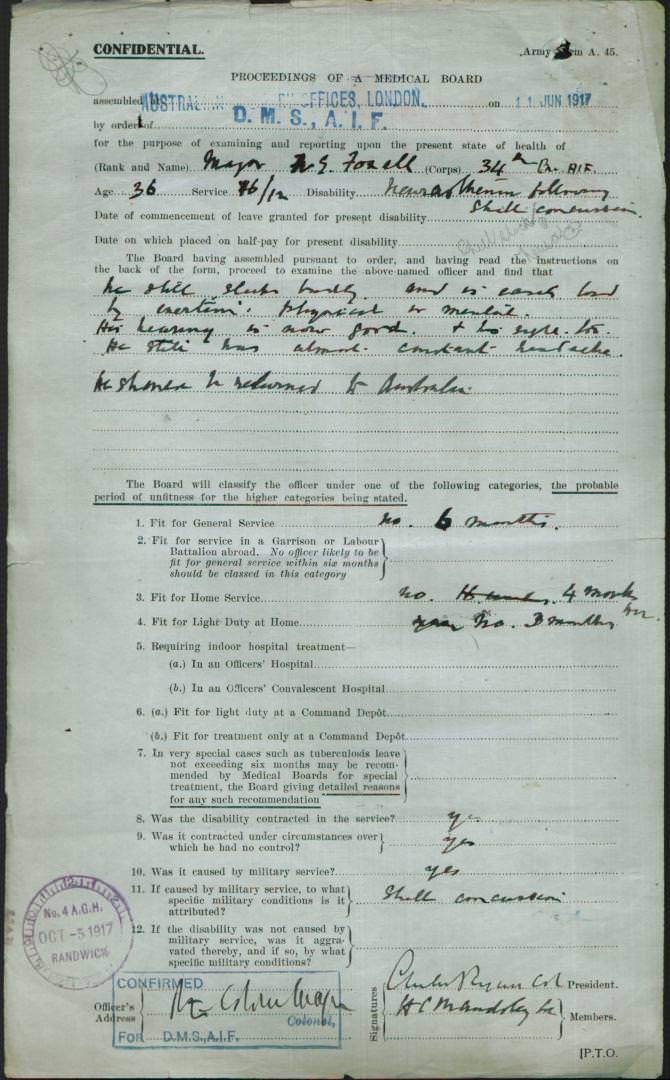 CONFIDENTIAL.
Army Form A. 45.
PROCEEDINGS OF A MEDICAL BOARD
assembled at AUSTRAL OFFICES, LONDON. on 11 JUN 1917
by order of D.M.S., A.I.F.
for the purpose of examining and reporting upon the present state of health of
(Rank and Name) Major N. E. Foxall (Corps) 34th Bn. AIF.
Age 36 Service /12 Disability Neurasthenia following
Shell concussion.
Date of commencement of leave granted for present disability
Date on which placed on half-pay for present disability
The Board having assembled pursuant to order, and having read the instructions on
the back of the form, proceed to examine the above-named officer and find that
he still sleeps badly and is easily tired
by exertion. Physical or mental.
His hearing is now good. & his sight too.
He still has almost constant headache.
He should be returned to Australia
The Board will classify the officer under one of the following categories, the probable
period of unfitness for the higher categories being stated.
1. Fit for General Service no. 6 months.
2. Fit for service in a Garrison or Labour
Battalion abroad. No officer likely to be
fit for general service within six months
should be classed in this category
3. Fit for Home Service no. 4 months
4. Fit for Light Duty at Home No. 3 months
5. Requiring indoor hospital treatment—
(a.) In an Officers' Hospital
(b.) In an Officers' Convalescent Hospital
6. (a.) Fit for light duty at a Command Depôt
(b.) Fit for treatment only at a Command Depôt
7. In very special cases such as tuberculosis leave
not exceeding six months may be recom-
mended by Medical Boards for special
treatment, the Board giving detailed reasons
for any such recommendation
8. Was the disability contracted in the service? yes
9. Was it contracted under circumstances over
which he had no control? yes
10. Was it caused by military service? yes
11. If caused by military service, to what
specific military conditions is it
attributed? Shell concussion
12. If the disability was not caused by
military service, was it aggra-
vated thereby, and if so, by what
specific military conditions?
No. 4 A.G.H.
OCT -5 1917
RANDWICK
CONFIRMED
Officer's
Address
Colonel,
FOR D.M.S., A.I.F.
Signatures
Charles Ryan Col President.
H C Maudsley Members.
[P.T.O.